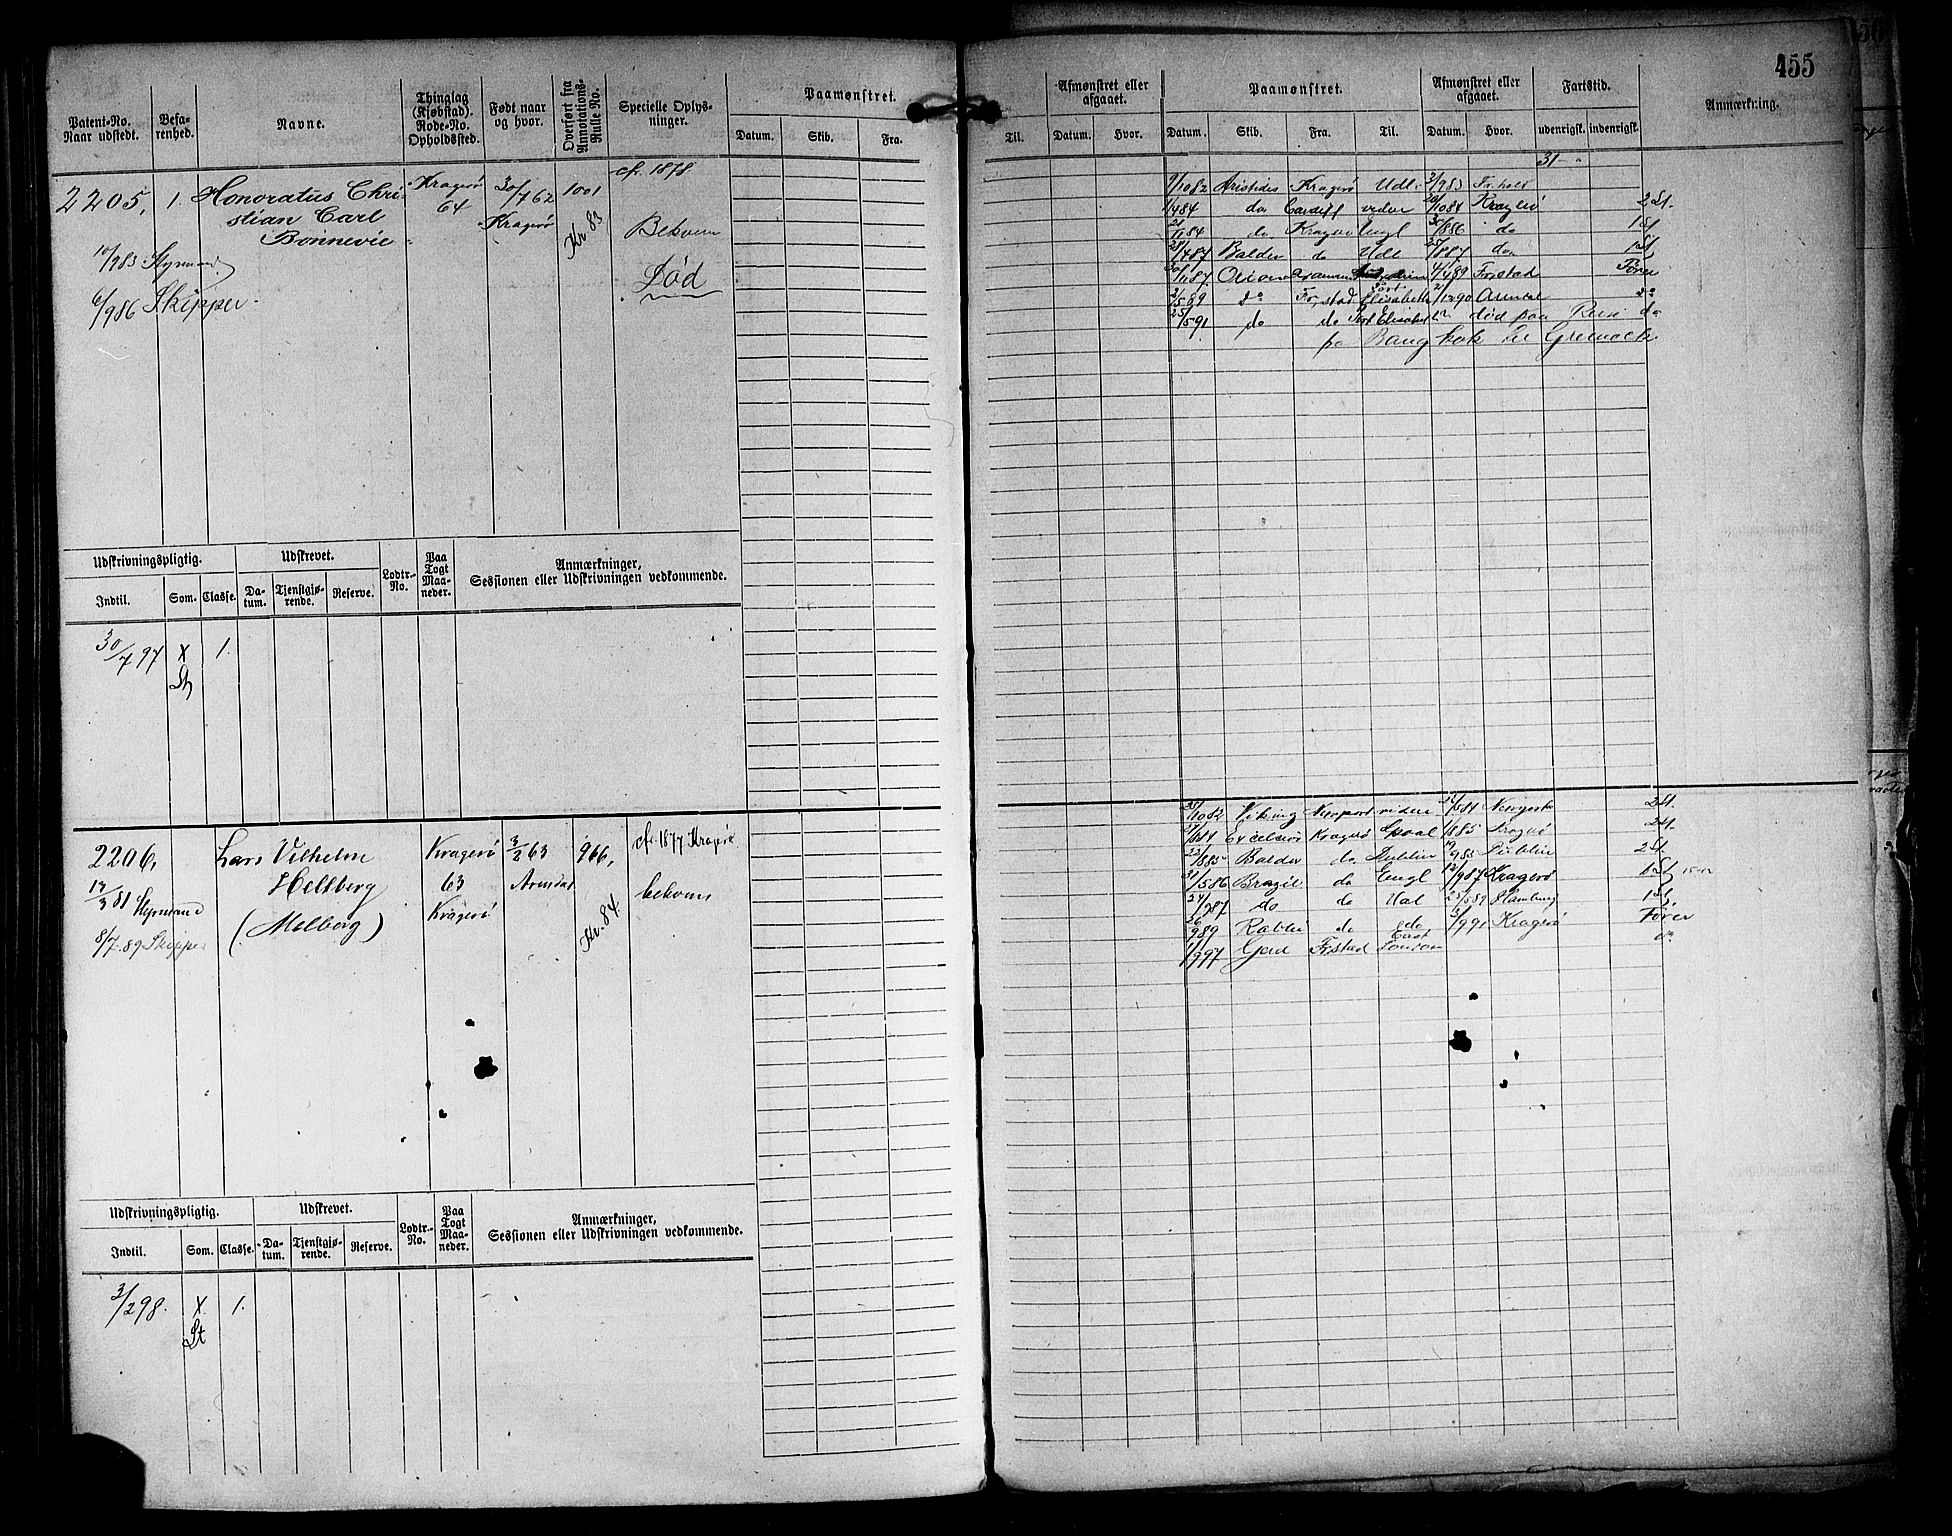 455
Patent-No. Naar udstedt.
Befarenhed.
Navne.
Thinglag (Kjøbstad). Rode-No. Opholdssted.
Født naar og hvor.
Overført fra Annotations-Rulle No.
Specielle Oplysninger.
Paamønstret.
Datum. Skib. Fra.
Til.
Afmønstret eller afgaaet.
Datum. Hvor.
Paamønstret.
Datum. Skib. Fra. Til.
Afmønstret eller afgaaet.
Datum. Hvor.
Fartstid.
udenrigsk. indenrigsk.
Anmærkning.
2205. 1. Honoratus Chri- Kragerø 30/7 62 1001 cfr. 1878.
stian Carl 64 Kragerø Kr. 83 Bekvem
Bonnevie
10/9 83 Styrmand Død
6/9 86 Skipper.
31
9/10 82 Aristides Kragerø Udl. 3/9 83
1/4 84 do Cardiff videre 10 84 Kragerø 2 St.
11 84 do Kragerø Engl 8 86 do 1 St
28/4 87 Balder do Udl 8 87 do 1 St
11 87 4/4 89 Frstad Fører
5 89 do Frstad Port Elisabeth 12 90 do
25/5 91 do do Port Elisabeth død paa Reise do
fra Bangkok til Greenock
Udskrivningspligtig. Udskrevet. Lodtr.-No. Paa Togt Maaneder. Anmærkninger, Sessionen eller Udskrivningen vedkommende.
Indtil. Som. Classe. Datum. Tjenstgjørende. Reserve.
30/7 97 X 1.
St
2206. Lars Vilhelm Kragerø 3/2 63 966, cfr. 1877 Kragerø
17/3 81 Styrmand Hellberg 63 Arendal bekvem
(Melberg) Kragerø Kr. 84
8/7 89 Skipper
10 82 Viking Newport videre 5 84 Newyork 2 St.
Excelsior Kragerø 85 2 St.
8 85 Balder do Dublin 9 85 Dublin 2 St.
31/5 86 Brazil do Engl 12/9 87 Kragerø 1 St
24 87 do do Udl 25/5 89 Hamburg 1 St.
26 9 89 do do 5/9 91 Kragerø Fører
1/9 97 Gerd Frstad East London do
Udskrivningspligtig. Udskrevet. Lodtr.-No. Paa Togt Maaneder. Anmærkninger, Sessionen eller Udskrivningen vedkommende.
Indtil. Som. Classe. Datum. Tjenstgjørende. Reserve.
3/2 98. X 1.
St